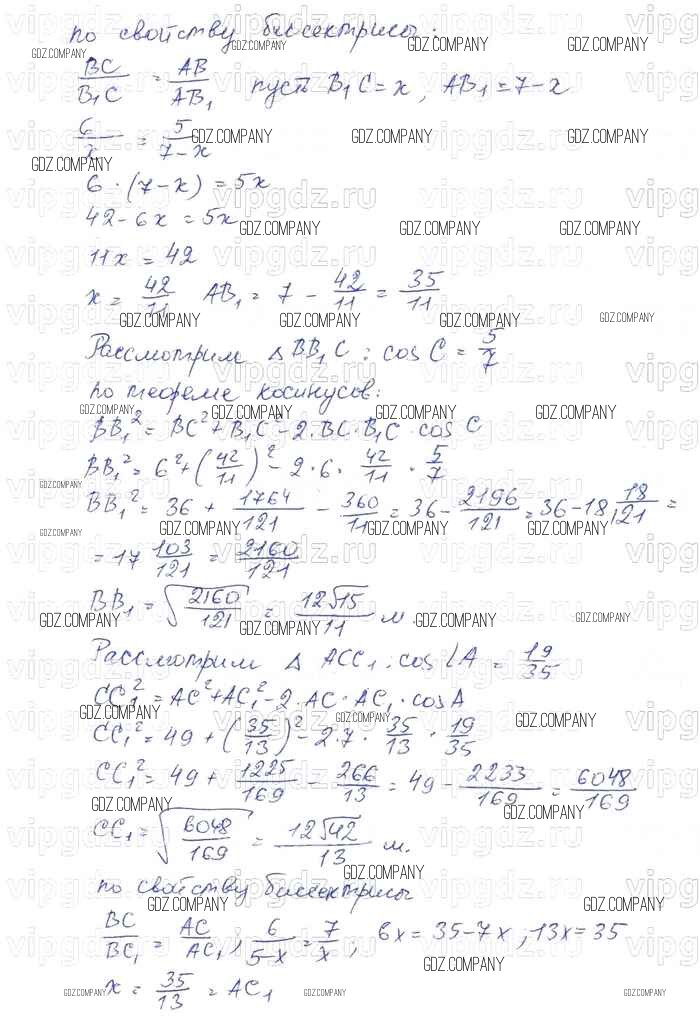 по свойству биссектрисы:
BC/B₁C = AB/AB₁ пусть B₁C = x, AB₁ = 7 - x
6/x = 5/(7-x)
6 · (7 - x) = 5x
42 - 6x = 5x
11x = 42
x = 42/11 AB₁ = 7 - 42/11 = 35/11
Рассмотрим △ BB₁C : cos C = 5/7
по теореме косинусов:
BB₁² = BC² + B₁C² - 2·BC·B₁C · cos C
BB₁² = 6² + (42/11)² - 2·6 · 42/11 · 5/7
BB₁² = 36 + 1764/121 - 360/11 = 36 - 2196/121 = 36 - 18 18/121 =
= 17 103/121 = 2160/121
BB₁ = √(2160/121) = 12√15/11 м.
Рассмотрим △ ACC₁ : cos∠A = 19/35
CC₁² = AC² + AC₁² - 2·AC·AC₁·cosA
CC₁² = 49 + (35/13)² - 2·7 · 35/13 · 19/35
CC₁² = 49 + 1225/169 - 266/13 = 49 - 2233/169 = 6048/169
CC₁ = √(6048/169) = 12√42/13 м.
по свойству биссектрисы
BC/BC₁ = AC/AC₁ ; 6/(5-x) = 7/x ; 6x = 35 - 7x ; 13x = 35
x = 35/13 = AC₁
vipgdz.ru
GDZ.COMPANY